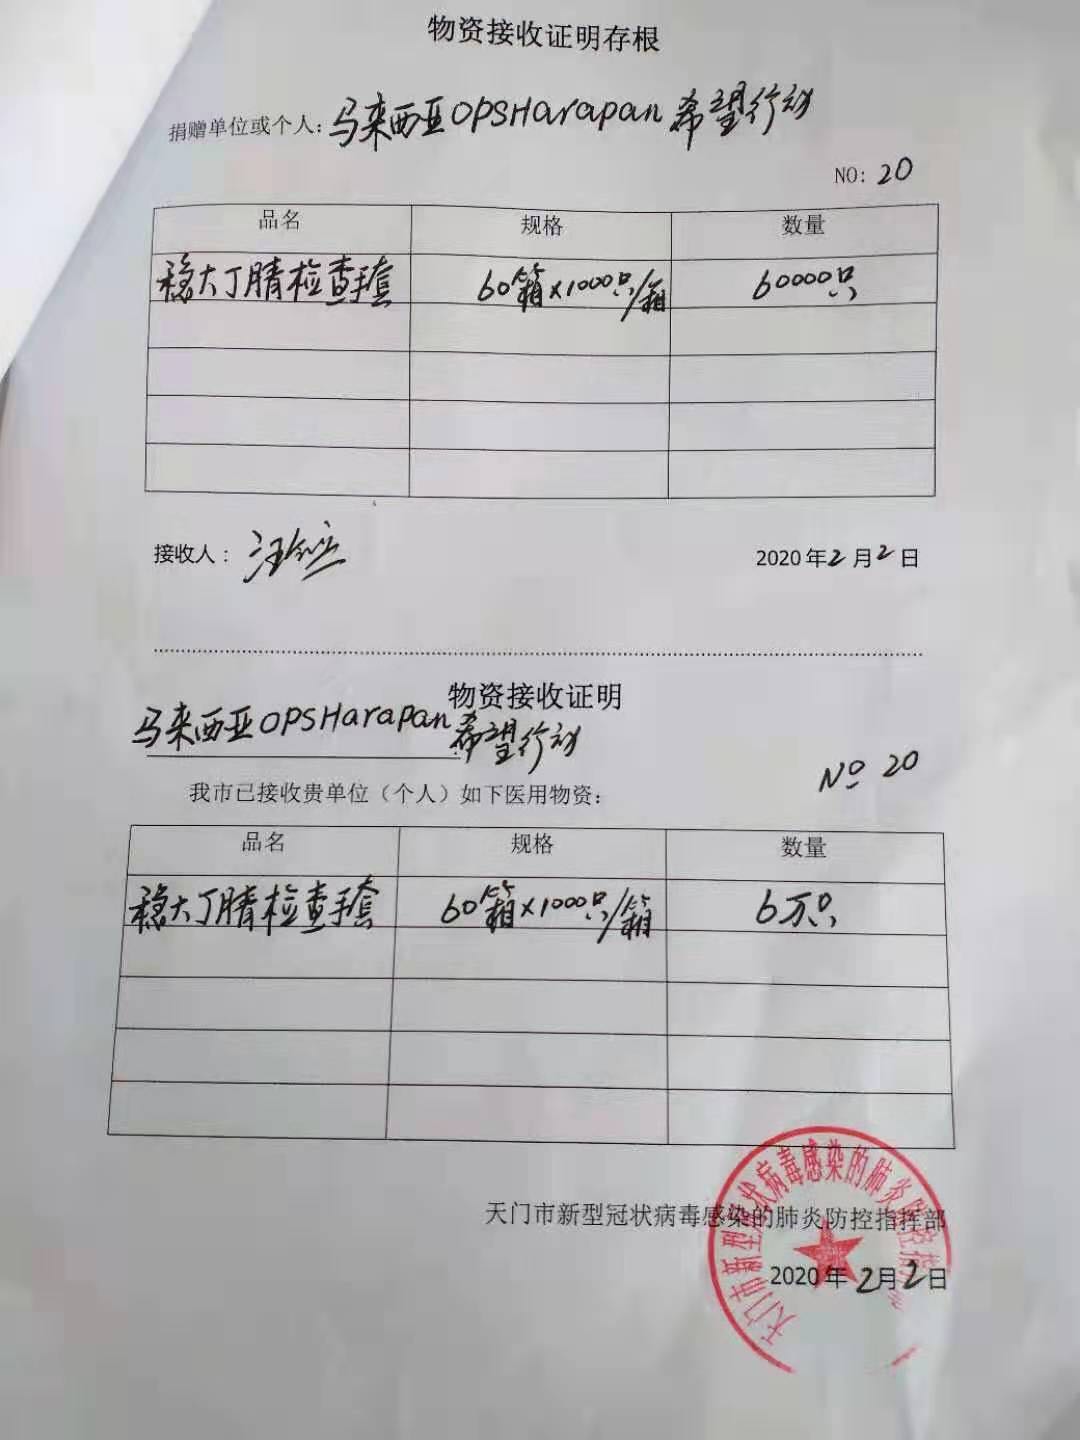 物资接收证明存根
捐赠单位或个人：马来西亚OPSHarapan希望行动
NO: 20
品名 规格 数量
稳大丁腈检查手套 60箱×1000只/箱 60000只
接收人：
2020年2月2日
物资接收证明
马来西亚OPSHarapan希望行动
No 20
我市已接收贵单位（个人）如下医用物资：
品名 规格 数量
稳大丁腈检查手套 60箱×1000只/箱 6万只
天门市新型冠状病毒感染的肺炎防控指挥部
2020年2月2日
天门市新型冠状病毒感染的肺炎防控指